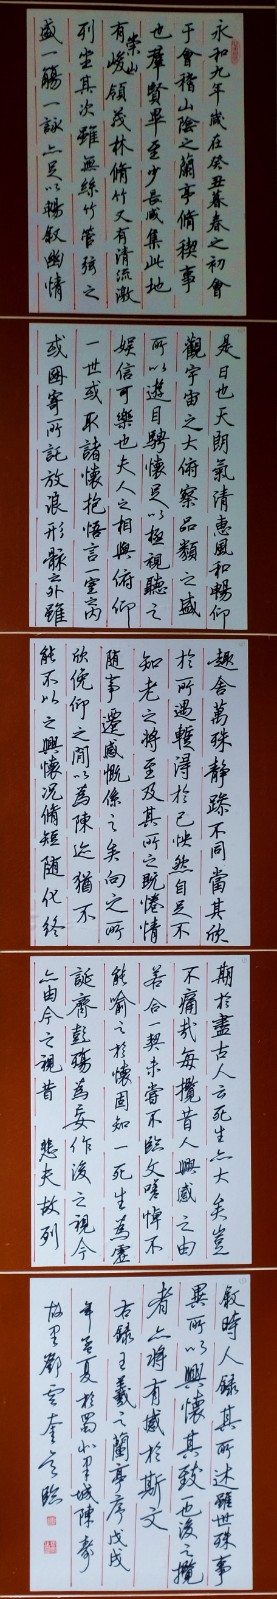 永和九年歲在癸丑暮春之初會
于會稽山陰之蘭亭脩稧事
也羣賢畢至少長咸集此地
有崇山峻領茂林脩竹又有清流激
列坐其次雖無絲竹管弦之
盛一觴一詠亦足以暢敘幽情
是日也天朗氣清惠風和暢仰
觀宇宙之大俯察品類之盛
所以遊目騁懷足以極視聽之
娛信可樂也夫人之相與俯仰
一世或取諸懷抱悟言一室之內
或因寄所託放浪形骸之外雖
趣舍萬殊靜躁不同當其欣
於所遇暫得於己怏然自足不
知老之將至及其所之既惓情
隨事遷感慨係之矣向之所
欣俛仰之閒以為陳迹猶不
能不以之興懷況脩短隨化終
期於盡古人云死生亦大矣豈
不痛哉每攬昔人興感之由
若合一契未嘗不臨文嗟悼不
能喻之於懷固知一死生為虛
誕齊彭殤為妄作後之視今
亦由今之視昔 悲夫故列
敘時人錄其所述雖世殊事
異所以興懷其致也後之攬
者亦將有感於斯文
右錄王羲之蘭亭序戊戌
年孟夏於蜀北果城陳壽
故里鄧雲奎臨